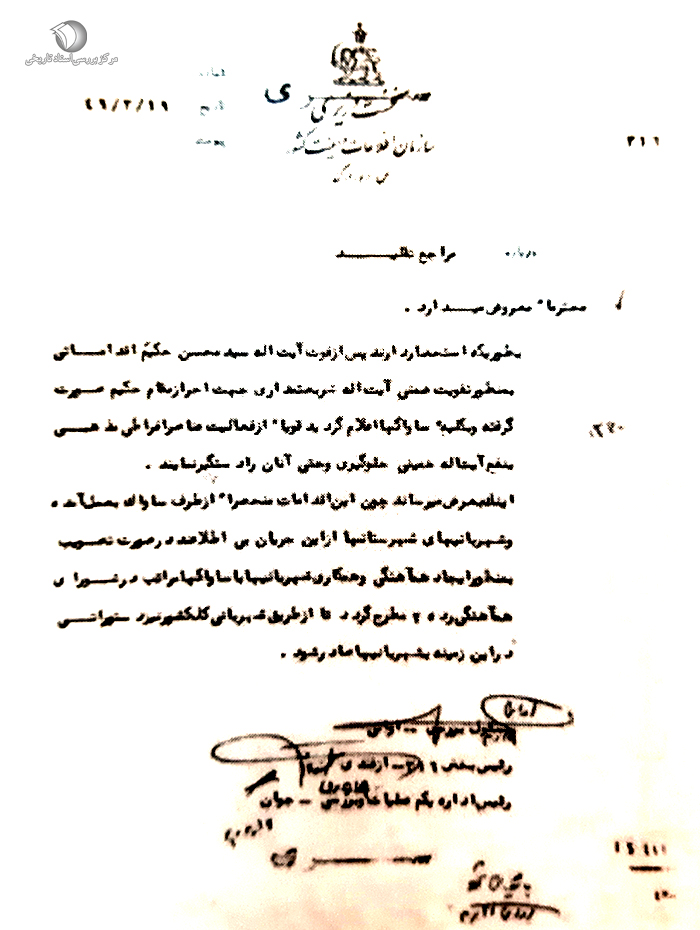 مرکز بررسی اسناد تاریخی
سری
نخست وزیری
سازمان اطلاعات و امنیت کشور
شماره
تاریخ ۴۹/۳/۱۹
پیوست
۳۱۶
درباره مراجع تقلید
محترما" معروض میدارد .
بطوریکه استحضار دارند پس از فوت آیت اله سید محسن حکیم اقداماتی
بمنظور تقویت ضمنی آیت اله شریعتمداری جهت احراز مقام حکیم صورت
گرفته وبکلیه ساواکها اعلام گردید قویا" از فعالیت عناصر افراطی مذهبی
بنفع آیت اله خمینی جلوگیری وحتی آنان را دستگیر نمایند .
اینک بعرض میرساند چون این اقدامات منحصرا" از طرف ساواک بعمل آمده
وشهربانیهای شهرستانها از این جریان بی اطلاعند در صورت تصویب
بمنظور ایجاد هم آهنگی وهمکاری شهربانیها با ساواکها مراتب در شورای
هم آهنگی رده ۲ مطرح گردد تا از طریق شهربانی کل کشور نیز دستوراتی
در این زمینه بشهربانیها صادر شود .
رئیس بخش ۳۱۶ - ازغندی
رئیس اداره یکم عملیات وبررسی - جوان
سری